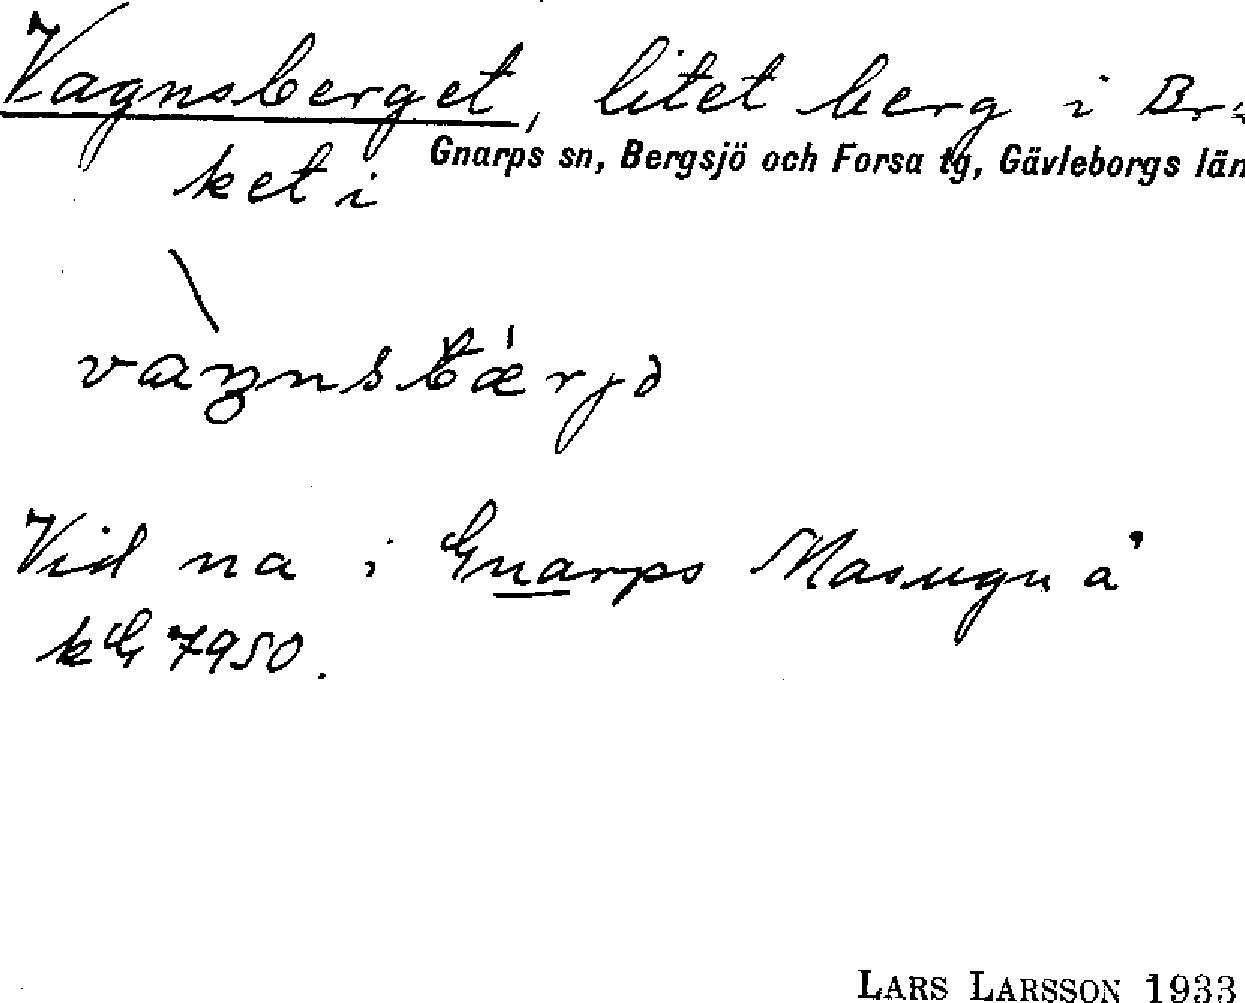 Vagnsberget, litet berg i Br-
Gnarps sn, Bergsjö och Forsa tg, Gävleborgs län
ket i
Vid na i Gnarps Masugn å
kG 7950.
LARS LARSSON 1933